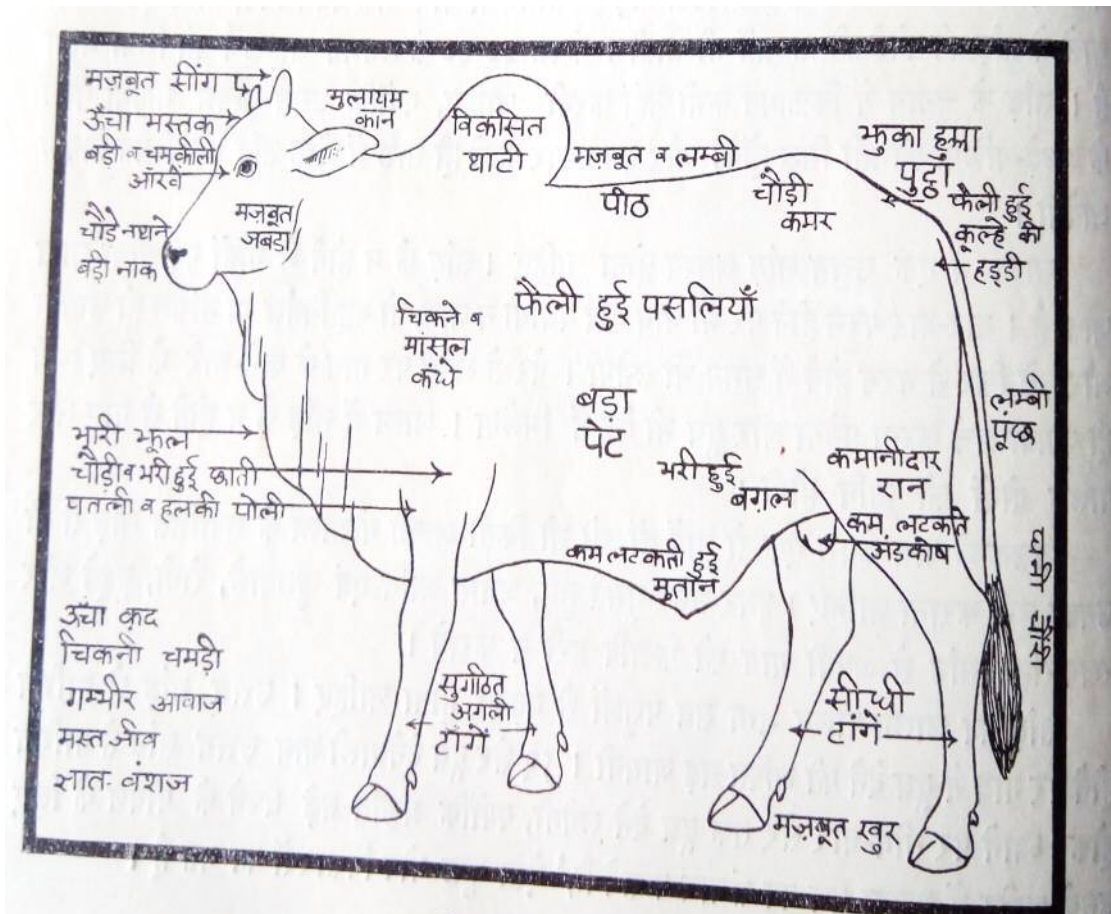 मज़बूत सींग
ऊंचा मस्तक
बड़ी व चमकीली
आँखें
चौड़े नथने
बड़ी नाक
मुलायम
कान
मज़बूत
जबड़ा
विकसित
थाटी
मज़बूत व लम्बी
पीठ
चौड़ी
कमर
झुका हुआ
पुट्ठा
फैली हुई
कूल्हे की
हड्डी
चिकने व
मांसूल
कंधे
फैली हुई पसलियाँ
बड़ा
पेट
लम्बी
पूंछ
भारी झूल
चौड़ी व भरी हुई छाती
पतली व हलकी पोली
भरी हुई
बग़ल
कमानीदार
रान
कम लटकते
अंडकोष
कम लटकती हुई
मुतान
घनी
ऊंचा कद
चिकनी चमड़ी
गम्भीर आवाज
मस्त
सुगठित
अगली
टाँगें
सीधी
टांगें
मज़बूत खुर